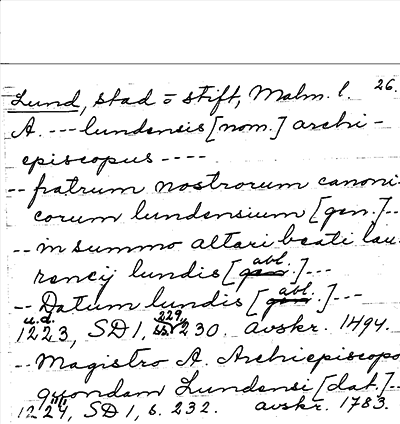 26.
Lund, stad o stift, Malm. l.
A. --- lundensis [nom.] archi-
episcopus ----
-- fratrum nostrorum canoni-
corum lundensium [gen.]--
-- in summo altari beati lau-
rencij lundis [gen. abl.]---
-- Datum lundis [gen. abl.]---
u.d.
1223, SD 1, 229, 230. avskr. 1494.
-- Magistro A. Archiepiscopo
quondam Lundensi [dat.]--
1224, SD 1, s. 232. avskr. 1783.